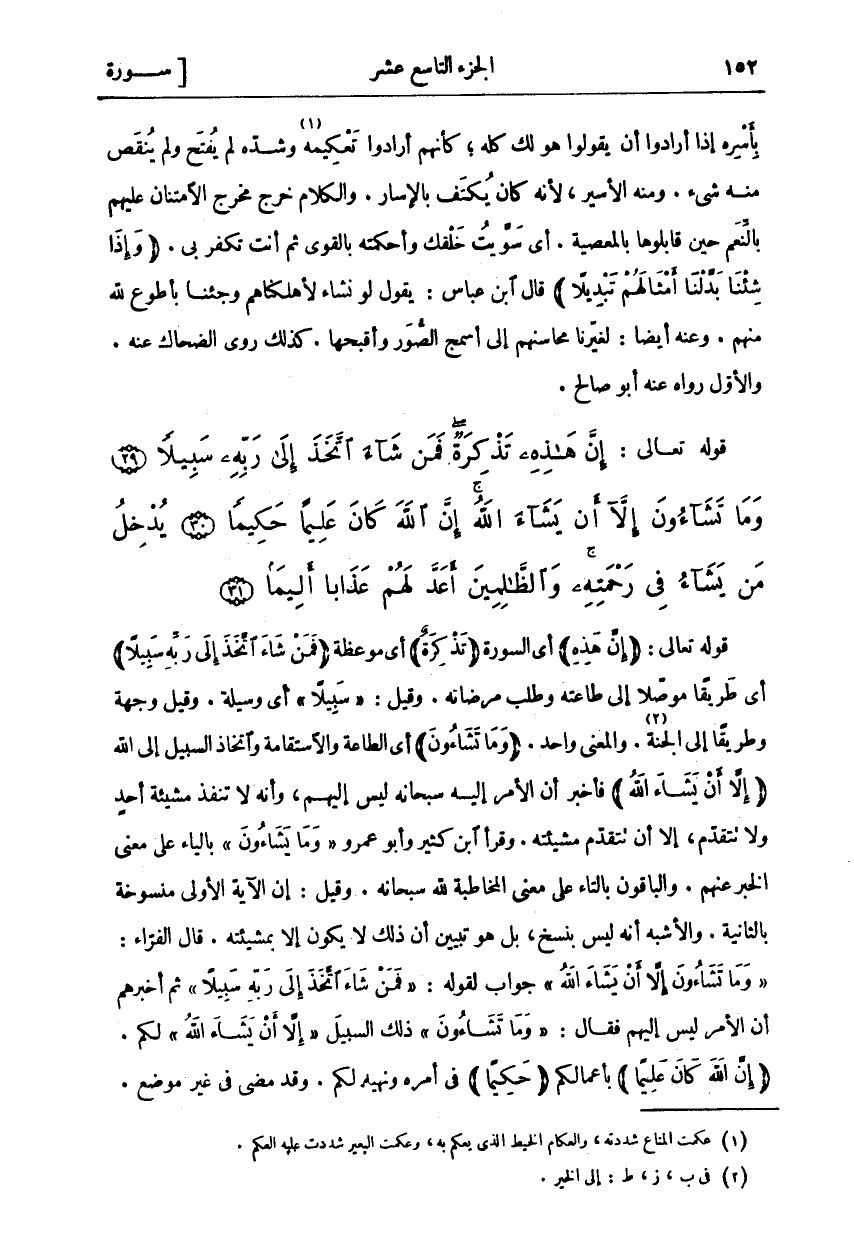 ١٥٢ الجزء التاسع عشر [ ســـورة
بِأَسْرِه إذا أرادوا أن يقولوا هو لك كله ؛ كأنهم أرادوا تَعْكِيمَه (١) وشــدّه لم يُفتَح ولم يُنقَص
منــه شىء . ومنه الأسير ، لأنه كان يُكتَف بالإسار . والكلام خرج مخرج الآمتنان عليهم
بالنِّعَم حين قابلوها بالمعصية . أى سَوَّيتُ خَلْقك وأحكمته بالقوى ثم أنت تكفر بى . ﴿ وَإِذَا
شِئْنَا بَدَّلْنَا أَمْثَالَهُمْ تَبْدِيلًا ﴾ قال آبن عباس : يقول لو نشاء لأهلكناهم وجئنــا بأطوع لله
منهم . وعنه أيضا : لغيّرنا محاسنهم إلى أسمج الصُّوَر وأقبحها . كذلك روى الضحاك عنه .
والأوّل رواه عنه أبو صالح .
قوله تعــالى : إِنَّ هَـٰذِهِۦ تَذْكِرَةٌۖ فَمَن شَآءَ ٱتَّخَذَ إِلَىٰ رَبِّهِۦ سَبِيلًا ۝٢٩
وَمَا تَشَآءُونَ إِلَّآ أَن يَشَآءَ اللَّهُۚ إِنَّ ٱللَّهَ كَانَ عَلِيمًا حَكِيمًا ۝٣٠ يُدْخِلُ
مَن يَشَآءُ فِى رَحْمَتِهِۦۚ وَٱلظَّـٰلِمِينَ أَعَدَّ لَهُمْ عَذَابا أَلِيمَا ۝٣١
قوله تعالى : ﴿ إِنَّ هَذِهِ ﴾ أى السورة ﴿ تَذْكِرَةٌ ﴾ أى موعظة ﴿ فَمَنْ شَاءَ ٱتَّخَذَ إِلَى رَبِّهِ سَبِيلًا ﴾
أى طَرِيقًا موصّلا إلى طاعته وطلب مرضاته . وقيل : « سَبِيلًا » أى وسيلة . وقيل وجهة
وطريقًا إلى الجنة (٢) . والمعنى واحد . ﴿ وَمَا تَشَاءُونَ ﴾ أى الطاعة والآستقامة وآتخاذ السبيل إلى الله
﴿ إِلَّا أَنْ يَشَــاءَ اللَّهُ ﴾ فأخبر أن الأمر إليــه سبحانه ليس إليهــم ، وأنه لا تنفذ مشيئة أحد
ولا تتقدّم ، إلا أن تتقدّم مشيئته . وقرأ آبن كثير وأبو عمرو « وَمَا يَشَاءُونَ » بالياء على معنى
الخبر عنهم . والباقون بالتاء على معنى المخاطبة لله سبحانه . وقيل : إن الآية الأولى منسوخة
بالثانية . والأشبه أنه ليس بنسخ ، بل هو تبيين أن ذلك لا يكون إلا بمشيئته . قال الفرّاء :
« وَمَا تَشَاءُونَ إِلَّا أَنْ يَشَاءَ اللَّهُ » جواب لقوله : « فَمَنْ شَاءَ ٱتَّخَذَ إِلَى رَبِّهِ سَبِيلًا » ثم أخبرهم
أن الأمر ليس إليهم فقــال : « وَمَا تَشَــاءُونَ » ذلك السبيلَ « إِلَّا أَنْ يَشَــاءَ اللَّهُ » لكم .
﴿ إِنَّ اللَّهَ كَانَ عَلِيمًا ﴾ بأعمالكم ﴿ حَكِيمًا ﴾ فى أمره ونهيه لكم . وقد مضى فى غير موضع .
(١) عكمت المتاع شددته ، والعكام الخيط الذى يعكم به ، وعكمت البعير شددت عليه العكم .
(٢) فى ب ، ز ، ط : إلى الخير .